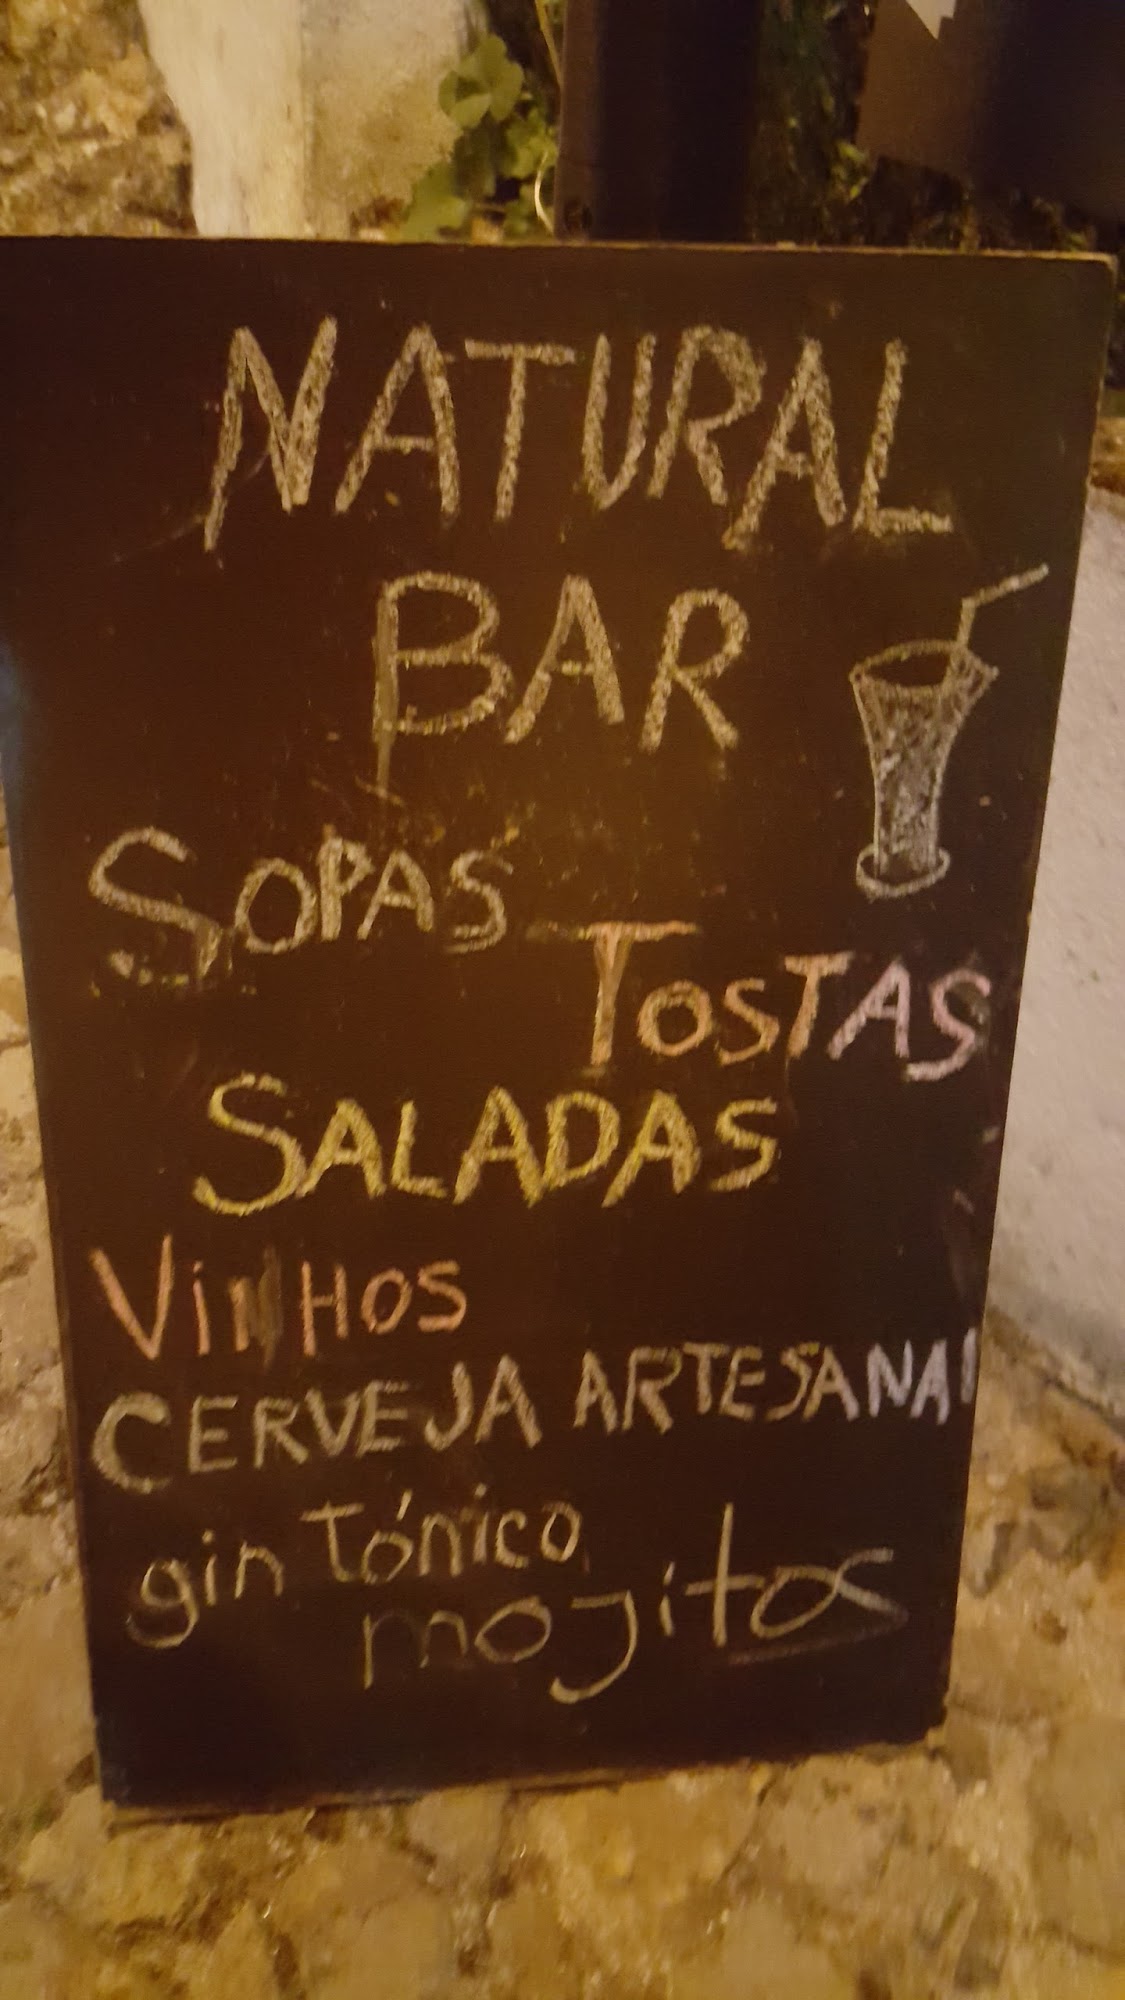 NATURAL
BAR
SOPAS
TOSTAS
SALADAS
ViNHOS
CERVEJA ARTESANAl
gin Tónico
mojitos